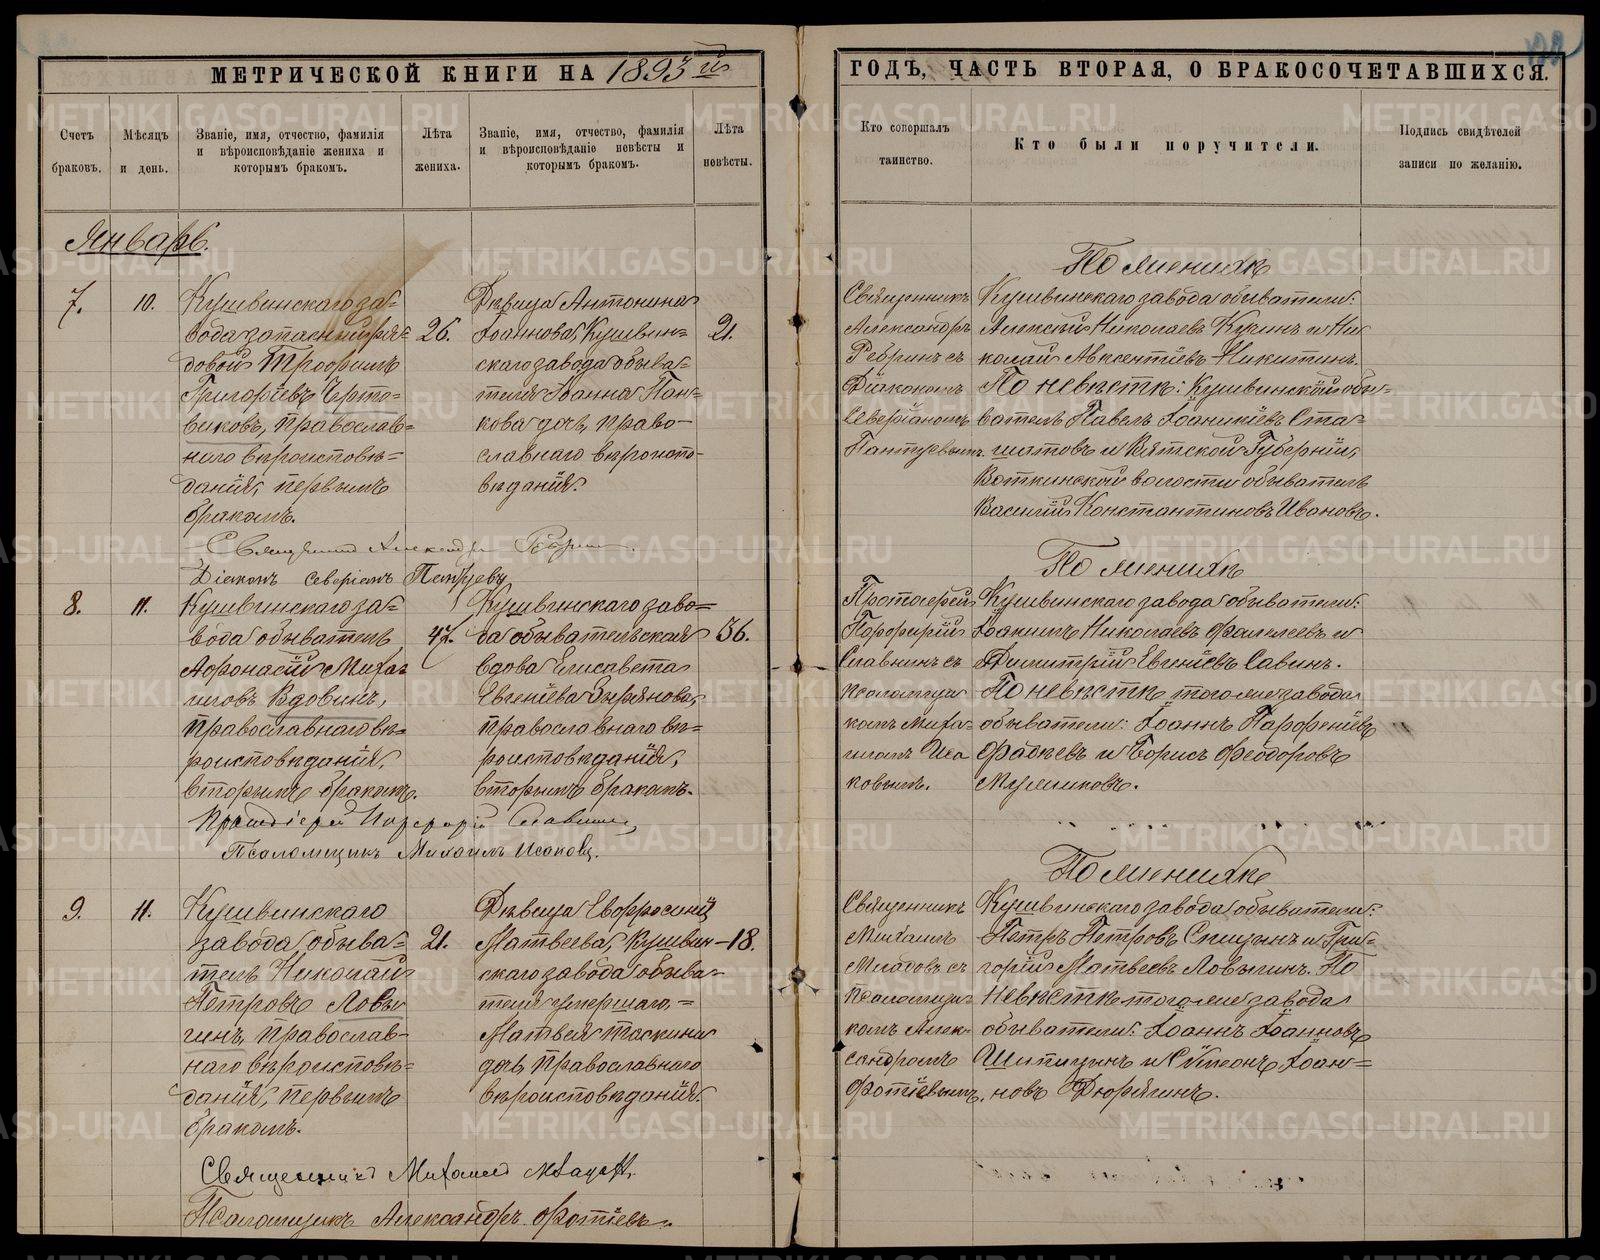 МЕТРИЧЕСКОЙ КНИГИ НА 1893й
Счетъ браковъ.
Мѣсяцъ и день.
Званіе, имя, отчество, фамилія и вѣроисповѣданіе жениха и которымъ бракомъ.
Лѣта жениха.
Званіе, имя, отчество, фамилія и вѣроисповѣданіе невѣсты и которымъ бракомъ.
Лѣта невѣсты.
Январь.
7.
10.
Кушвинскаго за-
вода запасный ря-
довой Трофимъ
Григоріевъ Черто-
виковъ, православ-
наго вѣроисповѣ-
данія, первымъ
бракомъ.
26.
Дѣвица Антонина
Іоаннова, Кушвин-
скаго завода обыва-
теля Іоанна Пан-
кова дочь, право-
славнаго вѣроиспо-
вѣданія.
21.
Священникъ Александръ Ребринъ.
Діаконъ Северіанъ Пантуевъ
8.
11.
Кушвинскаго за-
вода обыватель
Афонасій Миха-
иловъ Вдовинъ,
православнаго вѣ-
роисповѣданія,
вторымъ бракомъ.
47.
Кушвинскаго заво-
да обывательская
вдова Елисавета
Евгеніева
православнаго вѣ-
роисповѣданія,
вторымъ бракомъ.
36.
Протоіерей Порфирій Славнинъ
Псаломщикъ Михаилъ Исаковъ.
9.
11.
Кушвинскаго
завода обыва-
тель Николай
Петровъ Ловы-
гинъ, православ-
наго вѣроисповѣ-
данія, первымъ
бракомъ.
21.
Дѣвица Евфросинія
Матвеева, Кушвин-
скаго завода обыва-
теля умершаго,
Матвея Таскина
дочь, православнаго
вѣроисповѣданія.
18.
Священникъ Михаилъ
Псаломщикъ Александръ Фотіевъ.
ГОДЪ, ЧАСТЬ ВТОРАЯ, О БРАКОСОЧЕТАВШИХСЯ.
Кто совершалъ таинство.
Кто были поручители.
Подпись свидѣтелей записи по желанію.
Священникъ
Александръ
Ребринъ съ
Діакономъ
Северіаномъ
Пантуевымъ.
По женихѣ
Кушвинскаго завода обыватели:
Алексѣй Николаевъ Кузинъ и Ни-
колай Авксентіевъ Никитинъ.
По невѣстѣ: Кушвинской обы-
ватель Павелъ Іоанникіевъ Ста-
шатовъ и Вятской Губерніи,
Воткинской волости обыватель
Василій Константиновъ Ивановъ.
Протоіерей
Порфирій
Славнинъ съ
псаломщи-
комъ Миха-
иломъ Иса-
ковымъ.
По женихѣ
Кушвинскаго завода обыватели:
Іоакимъ Николаевъ Фалелеевъ и
Димитрій Евгеніевъ Савинъ.
По невѣстѣ тогоже завода
обыватели: Іоаннъ Парфеніевъ
Фадѣевъ и Борисъ Феодоровъ
Священникъ
Михаилъ
съ
псаломщи-
комъ Алек-
сандромъ
Фотіевымъ.
По женихѣ
Кушвинскаго завода обыватели:
Петръ Петровъ Спицынъ и Гри-
горій Матвеевъ Ловыгинъ. По
невѣстѣ тогоже завода
обыватели: Іоаннъ Іоанновъ
Шипицинъ и Сѵмеонъ Іоан-
новъ Дюрягинъ.
METRIKI.GASO-URAL.RU